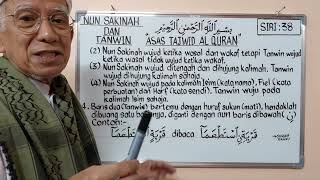 NUN SAKINAH
DAN
TANWIN
بِسْمِ اللَّهِ الرَّحْمَٰنِ الرَّحِيْمِ
"ASAS TAJWID AL QURAN"
SIRI:38
(2) Nun Sakinah wujud ketika wasal dan wakaf tetapi Tanwin wujud
ketika wasal tidak wujud ketika wakaf.
Nun Sakinah wujud ditengah dan dihujung kalimah. Tanwin
wujud dihujung kalimah sahaja.
(4) Nun Sakinah wujud pada kalimah Isim (kata nama), Fiel (kata
perbuatan) dan Harf (kata sendi). Tanwin wujud pada kalimah
Isim sahaja.
4. Baris dua (Tanwin) bertemu dengan huruf sukun (mati), hendaklah
dibuang satu barisnya, diganti dengan nun baris dibawah (نِ)
Contoh:-
قَرْيَةٍ اسْتَطْعَمَآ dibaca قَرْيَةِنِ اسْتَطْعَمَآ